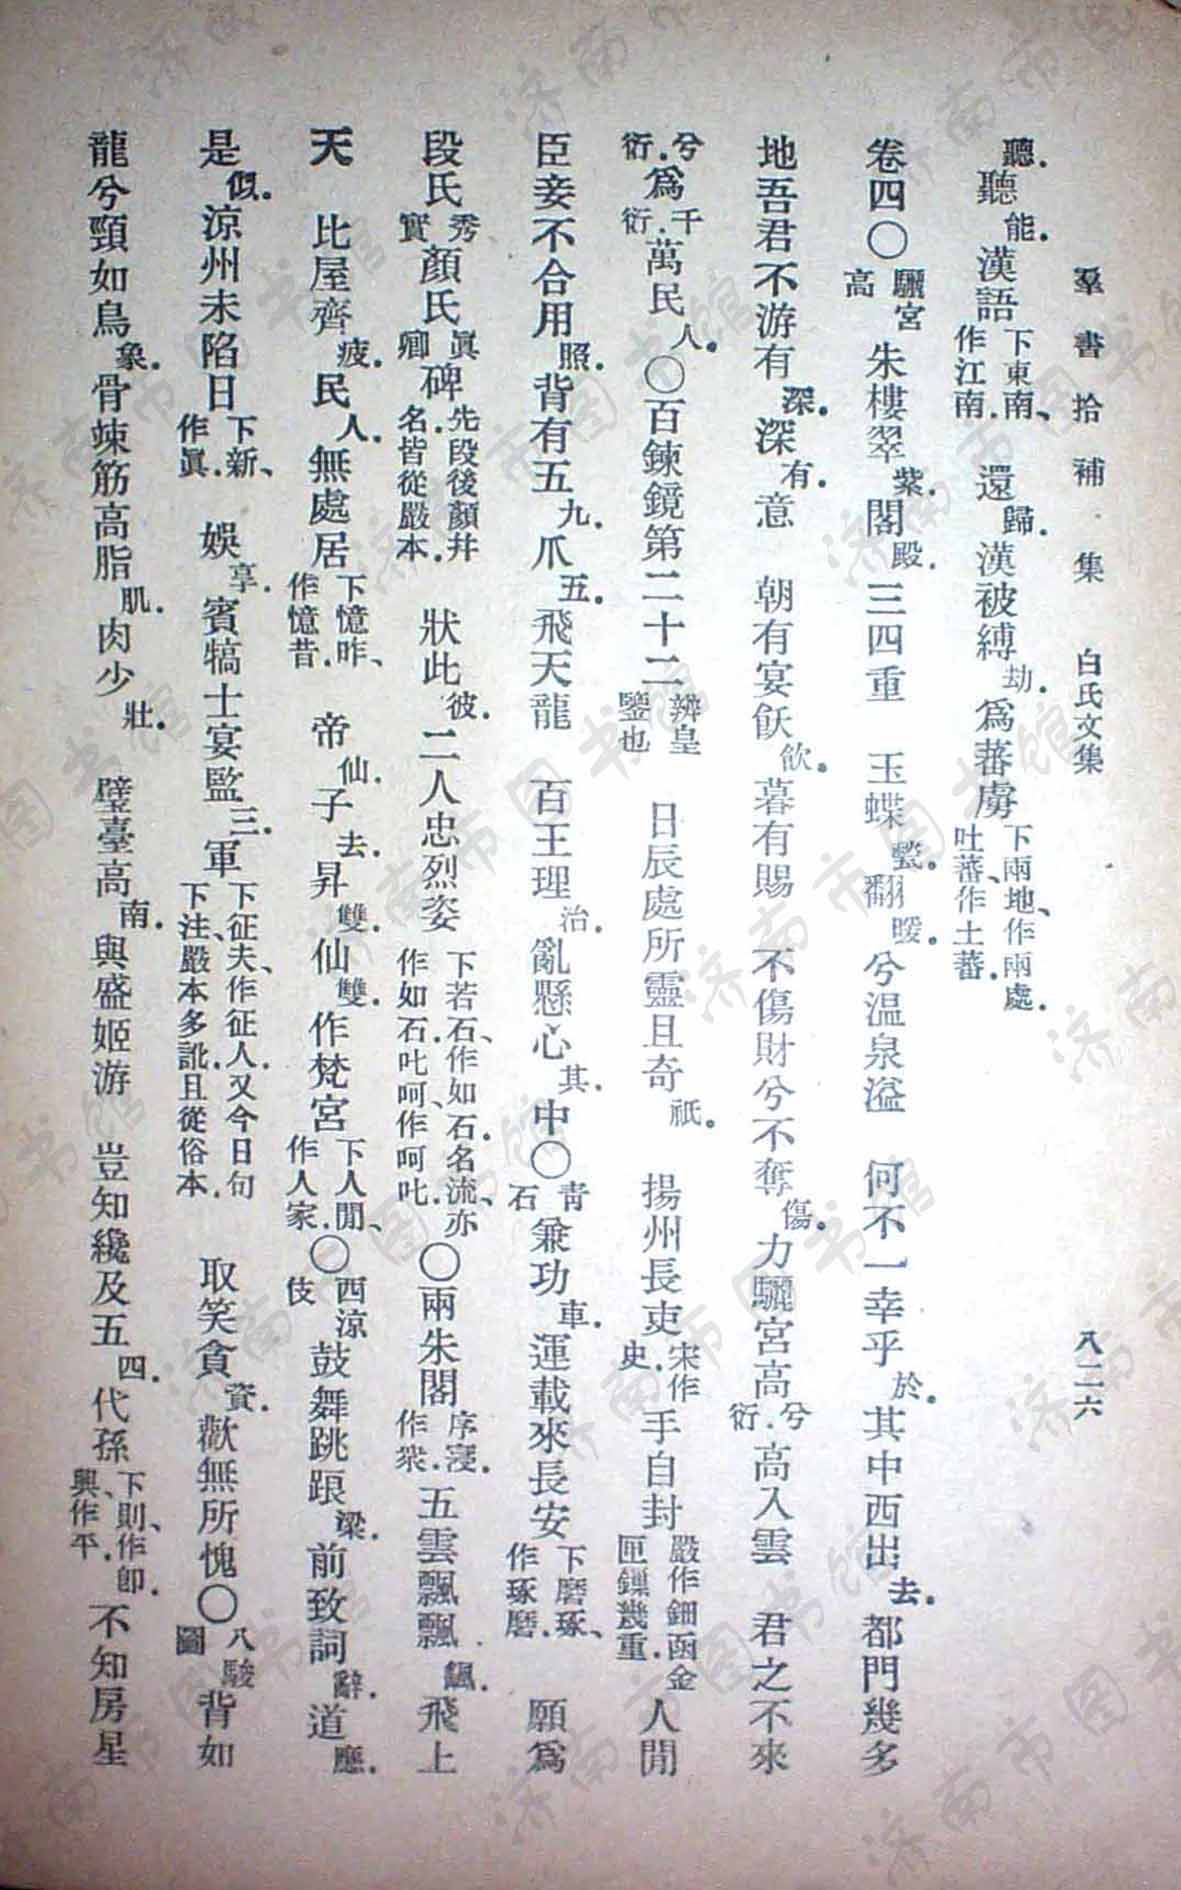 羣書拾補 集 白氏文集 八二六
聽聽能漢語下東南、作江南還歸漢被縛劫爲蕃虜下兩地、作兩處吐蕃、作土蕃
卷四〇驪宮高朱樓翠紫閣殿三四重 玉蝶甃翻暖兮溫泉溢 何不一幸乎於其中西出去都門幾多
地吾君不游有深深有意 朝有宴飫飲暮有賜 不傷財兮不奪傷力驪宮高兮衍高入雲 君之不來
兮衍爲千衍萬民人〇百鍊鏡第二十二辨皇鑒也 日辰處所靈且奇祇 揚州長吏宋作史手自封嚴作鈿函金匣鏁幾重人閒
臣妾不合用照背有五九爪五飛天龍 百王理治亂懸心其中〇青石兼功車運載來長安下磨琢、作琢磨 願爲
段氏秀實顏氏眞卿碑先段後顏幷名皆從嚴本 狀此彼二人忠烈姿下若石、作如石名流、亦作如石叱呵、作呵叱〇兩朱閣序寖作衆五雲飄飄飆飛上
天 比屋齊疲民人無處居下憶昨、作憶昔 帝仙子去昇雙仙雙作梵宮下人閒、作人家〇西涼伎鼓舞跳踉梁前致詞辭道應
是似涼州未陷日下新、作眞 娛享賓犒士宴監三軍下征夫、作征人又今日句下注、嚴本多訛且從俗本 取笑貪資歡無所愧〇八駿圖背如
龍兮頸如鳥象骨竦筋高脂肌肉少壯 璧臺高南與盛姬游 豈知纔及五四代孫下則、作卽興、作平不知房星